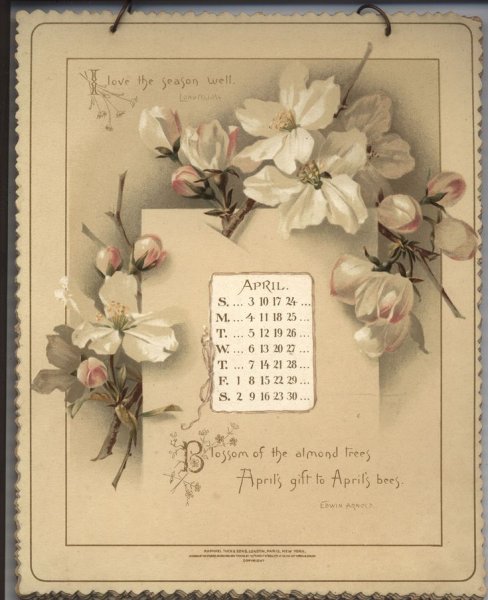 I love the season well.
Longfellow.
APRIL.
S. ... 3 10 17 24 ...
M. ... 4 11 18 25 ...
T. ... 5 12 19 26 ...
W. ... 6 13 20 27 ...
T. ... 7 14 21 28 ...
F. 1 8 15 22 29 ...
S. 2 9 16 23 30 ...
Blossom of the almond trees
April's gift to April's bees.
EDWIN ARNOLD.
RAPHAEL TUCK & SONS, LONDON, PARIS, NEW YORK.
COPYRIGHT